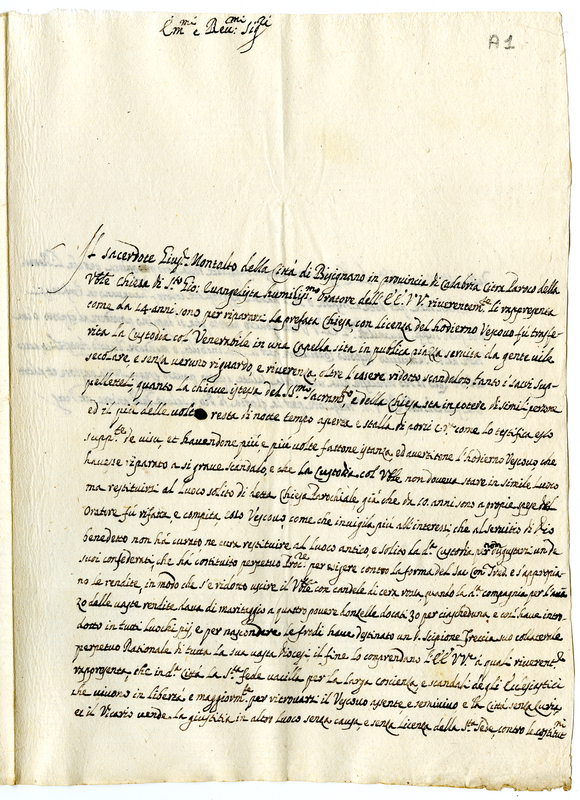 Em.mi e Rev.mi Sig.ri
A1
Il sacerdote Gius.e Montalto della Città di Bisignano in provincia di Calabria Citra Paroco della
V.bile Chiesa di S.to Gio: Evangelista humiliss.mo Oratore dell'EE. VV. riverentem.te li rapresenta
come da 14 anni sono per ripararsi la prefata Chiesa con licenza del hodierno Vescovo fù trasfe-
rita la Custodia col Venerabile in una Capella sita in publica piazza servita da gente vile
secolare, e senza veruno riguardo, e riverenza, oltre l'essere ridotto scandaloso, tanto i sacri sup-
pellettel, quanto la chiave istessa del SS.mo Sacram.to e della Chiesa sta in potere di simili persone
ed il più delle volte resta di notte tempo aperta, e stalla di porci come lo testifica esso
supp.te de visu, et havendone più, e più volte fattone istanza, ed avertitene l'hodierno Vescovo che
havesse riparato a sì grave scandalo, e che la Custodia col V.bile non doveva stare in simile luoco
ma restituirsi al luoco solito di detta Chiesa Parochiale già che da 10 anni sono a proprie spese del
Oratore fù rifatta, e compita, esso Vescovo, come che invigila più all'interessi, che al servitio di Dio
benedetto non hà curato ne cura restituire al luoco antico, e solito la d.a Custodia
suoi confederati, che hà costituito perpetuo Proc.re per esigere contro la forma del Sac. Con. Trid. e s'appropria-
no le rendite, in modo che s'è ridotto uscire il V.bile con candele di cera vinta, quando la d.a compagnia per l'avan-
zo delle vaste rendite dava di maritaggio a quattro povere donzelle docati 30 per ciascheduna, e così have intro-
dotto in tutti luochi pij, e per nascondere le frodi have destinato un D. Scipione Freccia suo collaterale
perpetuo Rationale di tutta la sua vasta Diocesi, il fine lo comprendano l'EE. VV. a quali riverent.te
rapresenta, che in d.a Città la S.ta Fede vacilla per la larga conscienza, e scandali degli Ecclesiastici
che vivono in libertà, e maggiorm.te per ritrovarsi il Vescovo assente e seminivo e la Città senza Curia,
et il Vicario vende la giustitia in altro luoco senza causa, e senza licenza della S.ta Sede, contro le costitut.ni